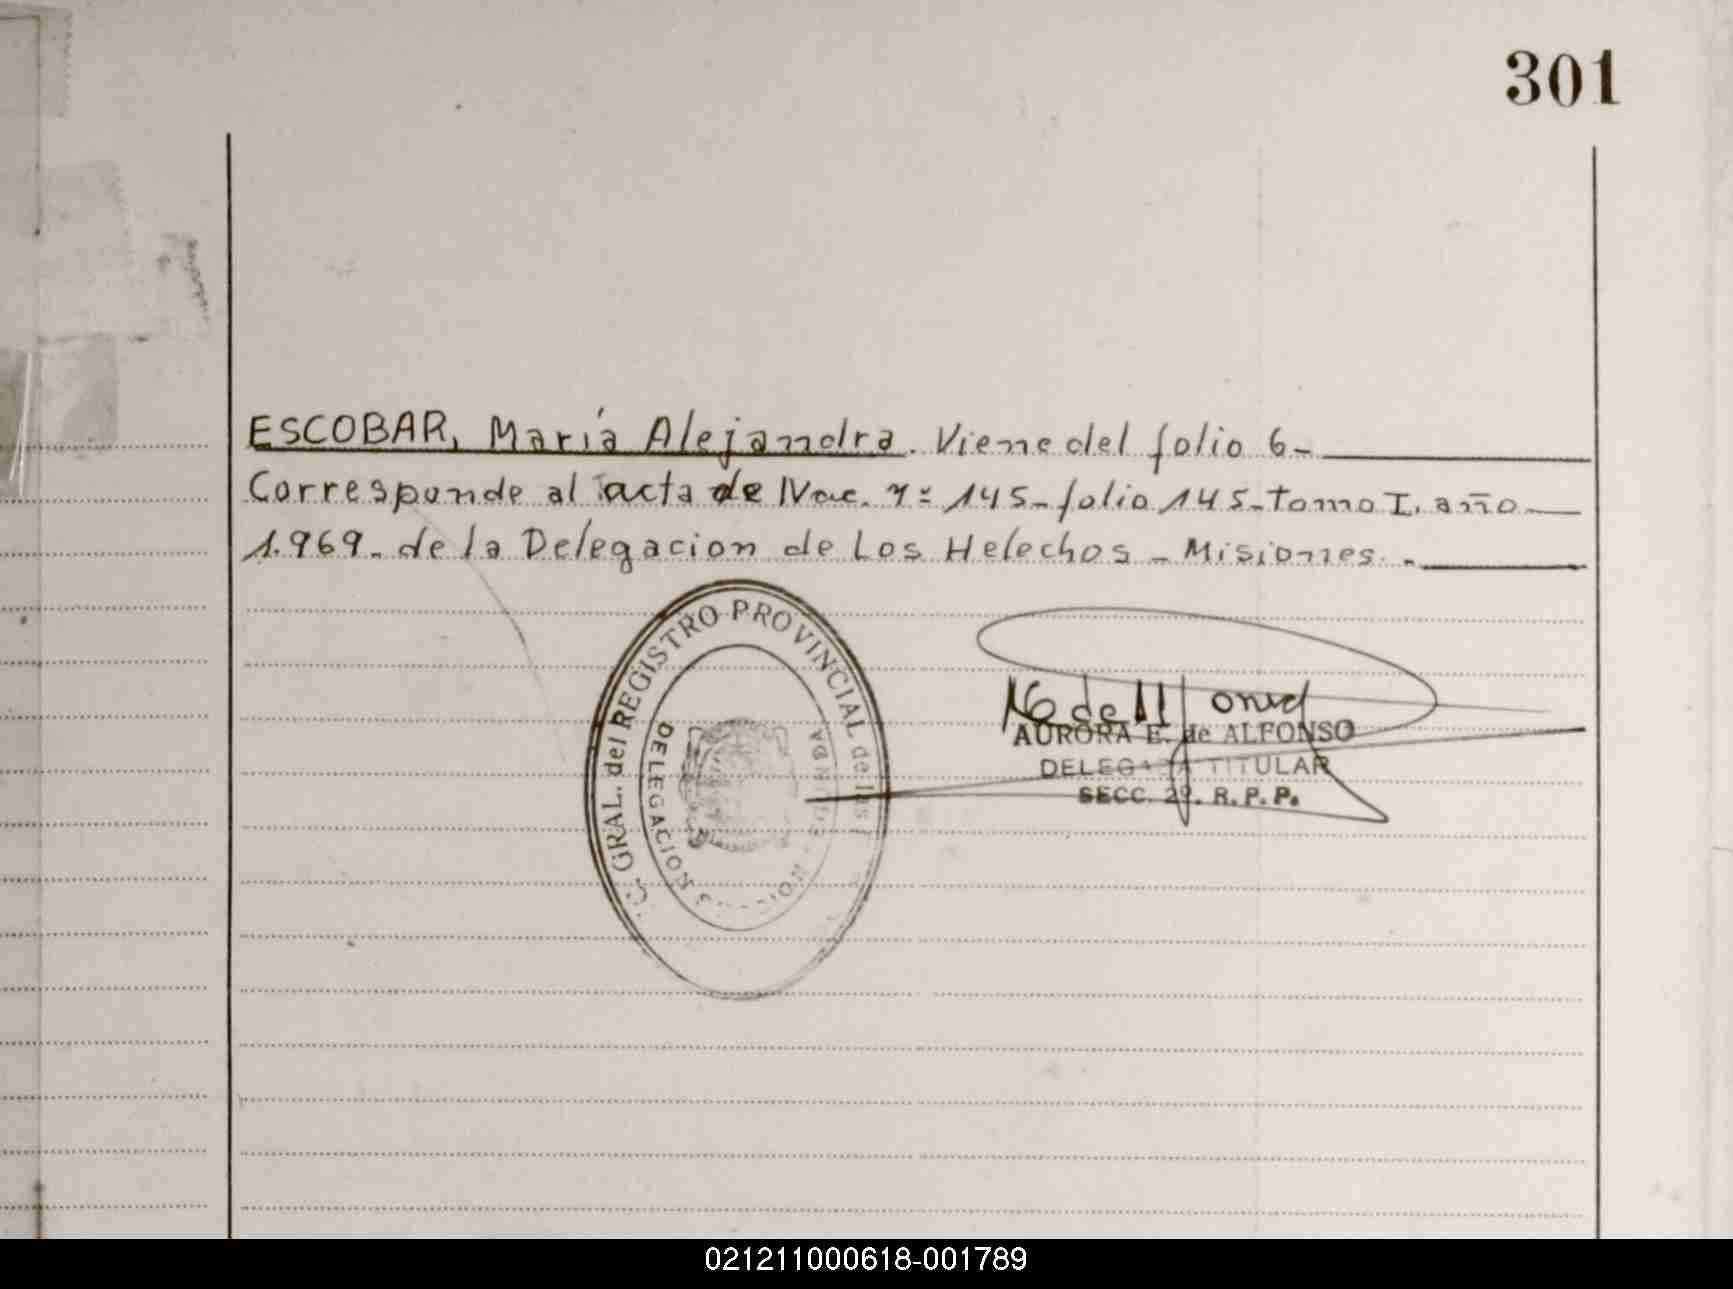 301
ESCOBAR, María Alejandra. Viene del folio 6-
Corresponde al acta de Nac. nº 145- folio 145- tomo I. año
1.969. de la Delegacion de Los Helechos - Misiones. -
GRAL. del REGISTRO PROVINCIAL de las
DELEGACION
AURORA E. de ALFONSO
DELEGADA TITULAR
SECC. 2ª. R. P. P.
021211000618-001789